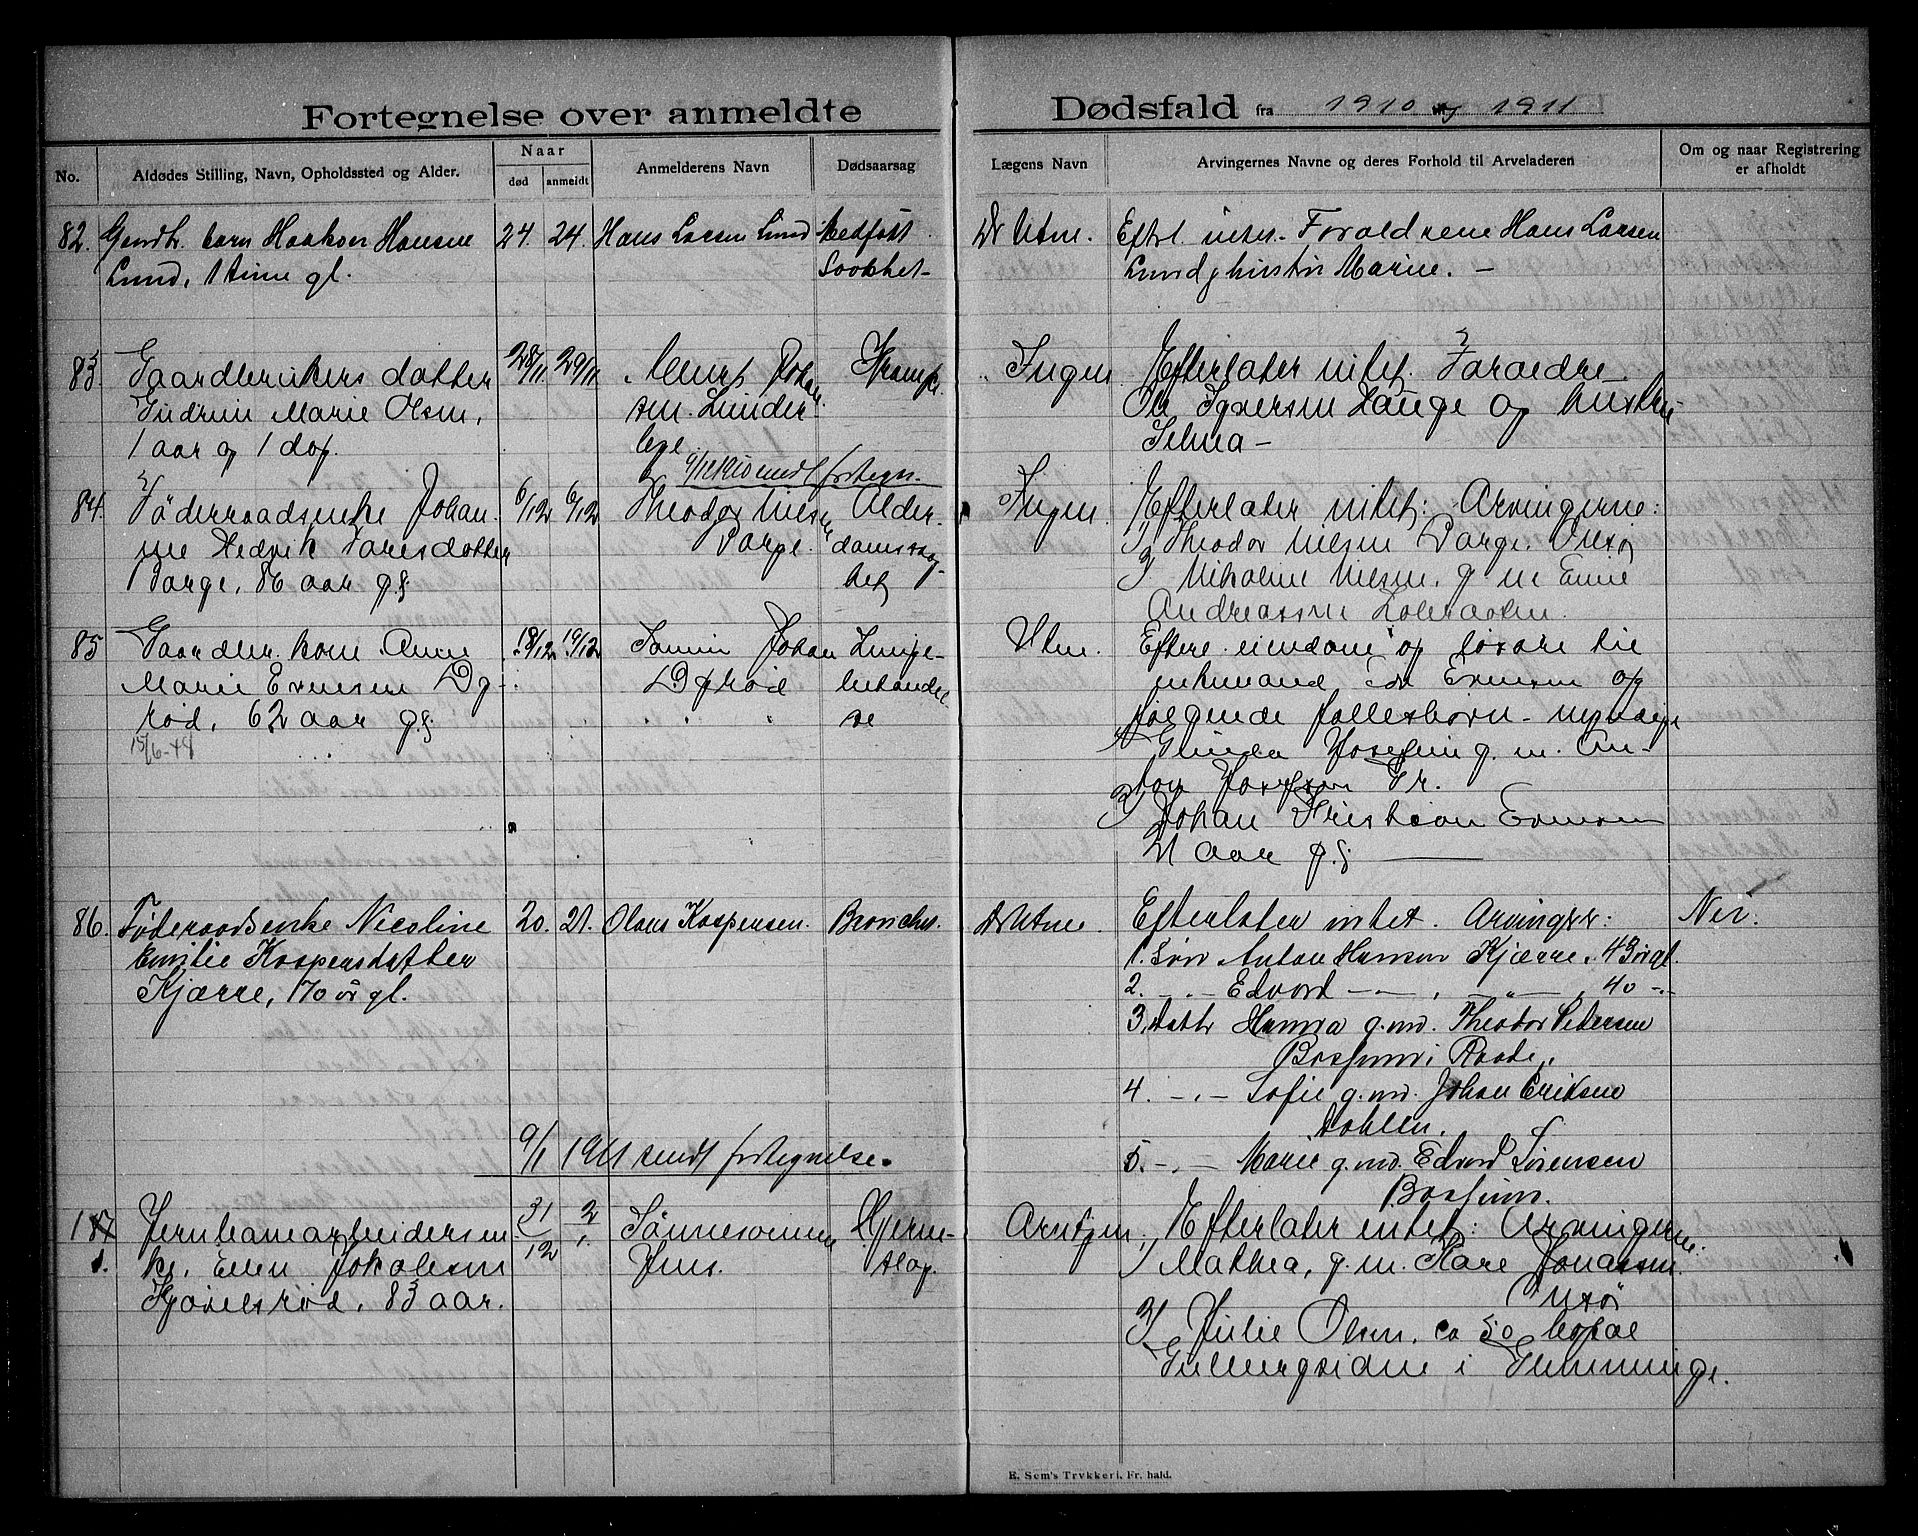 Fortegnelse over anmeldte Dødsfald fra 1910 og 1911
No.
Afdødes Stilling, Navn, Opholdssted og Alder.
Naar
død
anmeldt
Anmelderens Navn
Dødsaarsag
Lægens Navn
Arvingernes Navne og deres Forhold til Arveladeren
Om og naar Registrering
er afholdt
82. Gaardbr. barn Haakon Hansen
Lund, 1 time gl.
24. 24.
Hans Larsen Lund
Medfødt
Svakhet
Dr Utne.
Efterl. intet. Forældrene Hans Larsen
Lund g hustru Marine. —
83. Gaardbrukers datter
Gudrun Marie Olsen,
1 aar og 1 dag.
28/11 29/11
Johan
sen. Lunder
Krampe
Ingen
Efterlater intet. Forældre
Ole Syversen Hauge og hustru
Selma —
9/12 1910 sendt fortegn.
84. Føderaadsenke Johan
ne Hedvik Larsdatter
Borge, 86 aar g.
6/12 6/12
Theodor Nilsen
Borge.
Alder-
domssvag
het
Ingen
Efterlater intet: Arvingerne:
1) Theodor Nilsen Borge. Onsø
2) Nikoline Nilsen. g m Emil
Andreassen
85 Gaardbr. kone Anne
Marie Evensen Dg
rød, 62 aar g.
15/6-48
18/12 19/12
Johan
Dgrød
Lunge-
betændel
se
Utne.
Efterl. eiendom og løsøre til
enkemand Evensen og
følgende fællesbarn - myndige
1) Josefine g. m. An-
ton Josefsen Fr.
2) Johan Kristian Evensen
21 aar g.
86. Føderaadsenke Nicoline
Emilie Kaspersdatter
Kjærre, 70 år gl.
20. 21.
Olaus Kaspersen.
Bronchit.
Dr Utne.
Efterlater intet. Arvinger:
1. Søn Anton Hansen Kjærre, 43 år gl.
2. —.— Edvard —.— , —„— , 40 —.—
3. datt Hanna g. md. Theodor Pedersen
Bossum i Raade,
4. —.— Sofie g. md. Johan Eriksen
Dahlen.
5. —.— Marie g. md. Edvard Sørensen
Bossum.
Nei.
9/1 1911 sendt fortegnelse.
1 Jernbanearbeidersen
ke. Ellen Jakobsen
Kjølsrød, 83 aar.
31/12 2/1.
Sønnesønnen
Jens.
Hjerne-
slag.
Arntzen,
Efterlater intet: Arvingerne:
1) Mathea, g. m. Kare Jonassen.
Onsø
2) Julie Olsen, ca 50 bopæl
i Glemminge.
E. Sem's Trykkeri, Fr. hald.